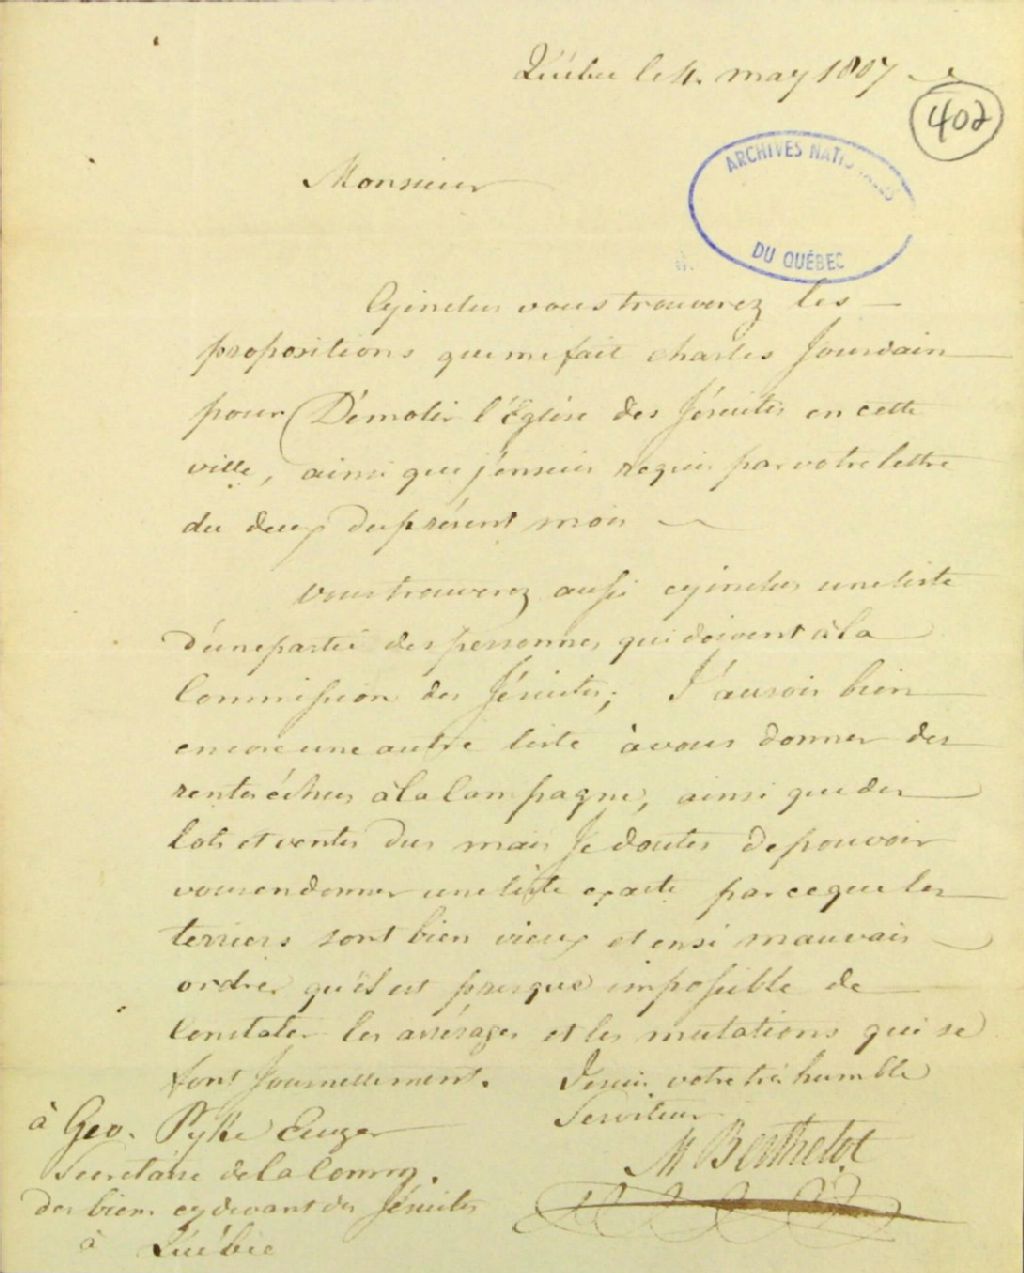 Québec le 4. may 1807
402
ARCHIVES NATIONALES
DU QUÉBEC
Monsieur
Cyinclus vous trouverez les
propositions que me fait charles Jourdain
pour Démolir l'Eglise des Jésuites en cette
ville, ainsi que j'en suis requis par votre lettre
du deux du présent mois
vous trouverez aussi cyinclus une liste
d'une partie des personnes qui doivent à la
Commission des Jésuites; J'aurois bien
encore une autre liste à vous donner des
rentes échues à la Campagne, ainsi que des
lots et ventes dus mais Je doutes de pouvoir
vous en donner une liste exacte parceque les
terriers sont bien vieux et en si mauvais
ordre qu'il est presque impossible de
Constater les arrérages et les mutations qui se
font Journellement. Je suis votre très humble
Serviteur
M Berthelot
à Geo. Pyke Ecuyer
Secretaire de la Comn.
des biens cy devant des Jésuites
à Québec